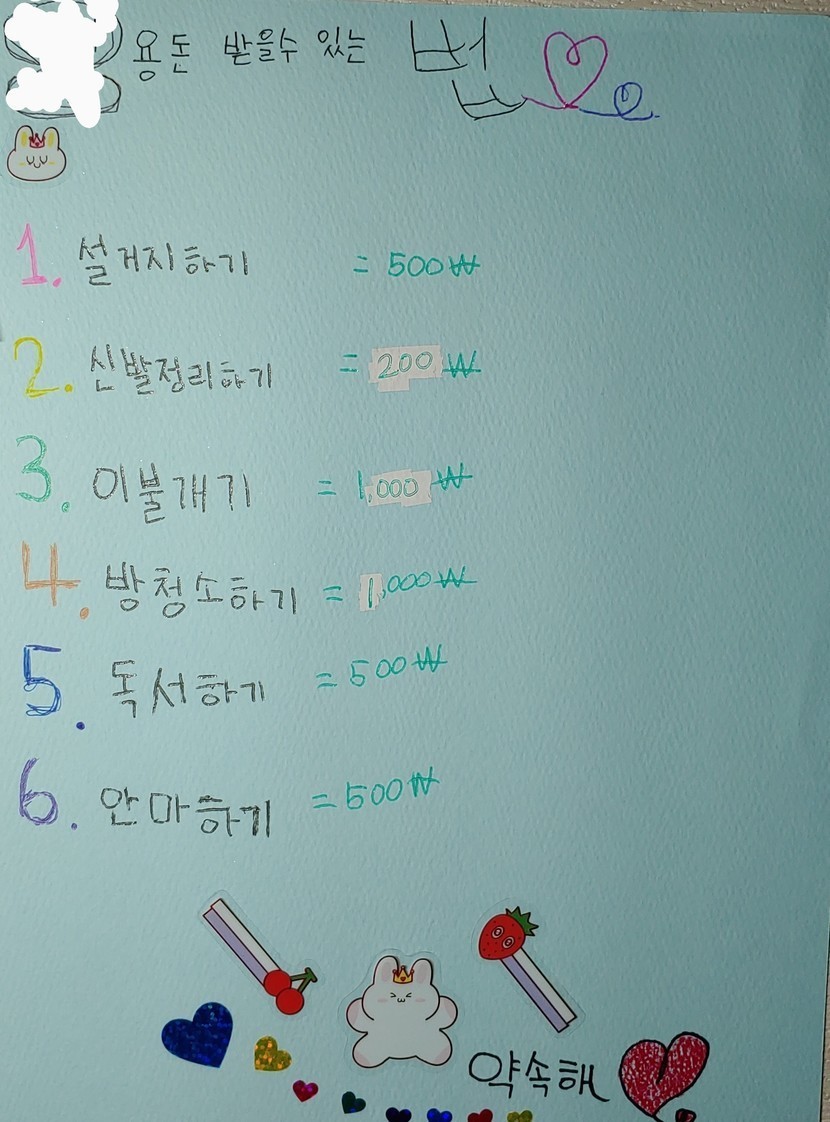 용돈 받을수 있는 법
1. 설거지하기 = 500₩
2. 신발정리하기 = 200₩
3. 이불개기 = 1,000₩
4. 방청소하기 = 1,000₩
5. 독서하기 = 500₩
6. 안마하기 = 500₩
약속해